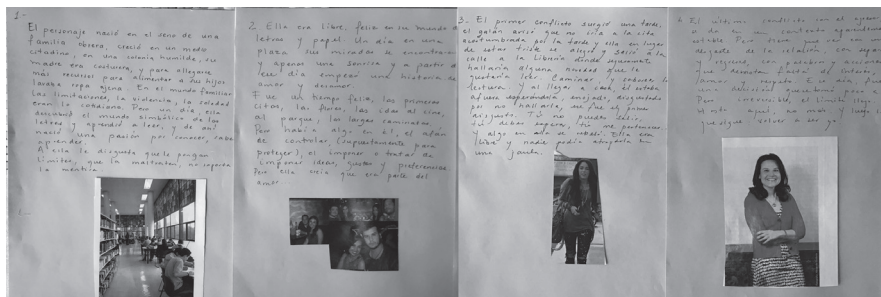 1-
El personaje nació en el seno de una
familia obrera, creció en un medio
citadino, en una colonia humilde, su
madre era costurera, y para allegarse
más recursos para alimentar a sus hijos
lavaba ropa ajena. En el mundo familiar
las limitaciones, la violencia, la soledad
eran lo cotidiano, un día, ella
descubrió el mundo simbólico de las
letras y aprendió a leer, y de ahí
nació una pasión por conocer, saber
aprender.
A ella le disgusta que le pongan
límites, que la maltraten, no soporta
la mentira.
2. Ella era libre, feliz en su mundo de
letras y papel. Un día en una
plaza sus miradas se encontraron
y apenas una sonrisa y a partir de
ese día empezar una historia de
amor y desamor.
Fue un tiempo feliz, las primeras
citas, las flores, las idas al cine,
al parque, las largas caminatas.
Pero había algo en él, el afán
de controlar, (supuestamente para
proteger), el imponer o tratar de
imponer ideas, gustos y preferencias.
Pero ella creía que era parte del
amor.
3. El primer conflicto surgió una tarde,
el galán avisó que no iría a la cita
acostumbrada por la tarde y ella en lugar
de estar triste se alegró y salió a la
calle a la librería donde seguramente
hallaría alguna novedad que le
gustaría leer. Caminar,
lectura y al llegar a casa, él estaba
afuera esperándola, enojado, disgustado
por no hallarla, ese fue el primer
disgusto. Tú no puedes salir,
tú debes esperar, tú me perteneces
y algo en ella se rebeló. Ella era
libre y nadie podía atraparla en
una jaula.
4. El último conflicto con el
en un contexto
estable. Pero tiene
desgaste de la relación, con
y regreso, con palabras, acciones
que denotan falta de interés,
amor, y respeto. Ese día, fue
una decisión
Pero irreversible, el límite llegó
hasta aquí, no más, y luego
que sigue volver a ser yo